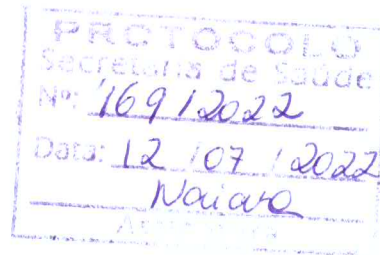 PROTOCOLO
Secretaria de Saúde
Nº: 169/2022
Data: 12/07/2022
Naiara
Assinatura